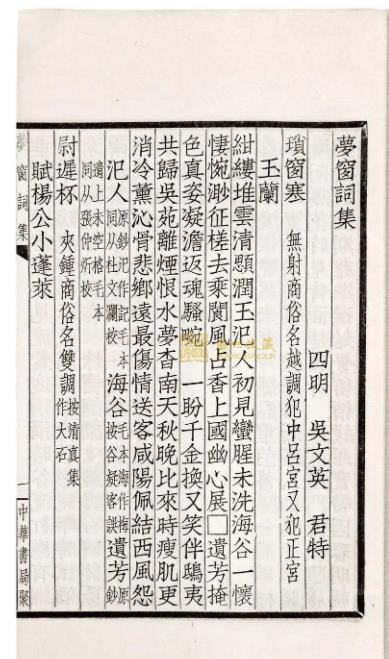 夢窗詞集
四明 吳文英 君特
瑣窗寒 無射商俗名越調犯中呂宮又犯正宮
玉蘭
紺縷堆雲清顋潤玉汜人初見蠻腥未洗海谷一懷
悽惋渺征槎去乘閬風占香上國幽心展□遺芳掩
色真姿凝澹返魂騷畹 一盼千金換又笑伴鴟夷
共歸吳苑離煙恨水夢杳南天秋晚比來時瘦肌更
消冷薰沁骨悲鄉遠最傷情送客咸陽佩結西風怨
汜人 原鈔汜作記毛本同从杜文瀾校 海谷 毛本海作梅按谷疑客誤 遺芳 原鈔
遺上未空格毛本同从張仲炘校
尉遲杯 夾鍾商俗名雙調 按清真集作大石
賦楊公小蓬萊
夢窗詞集 一 中華書局聚